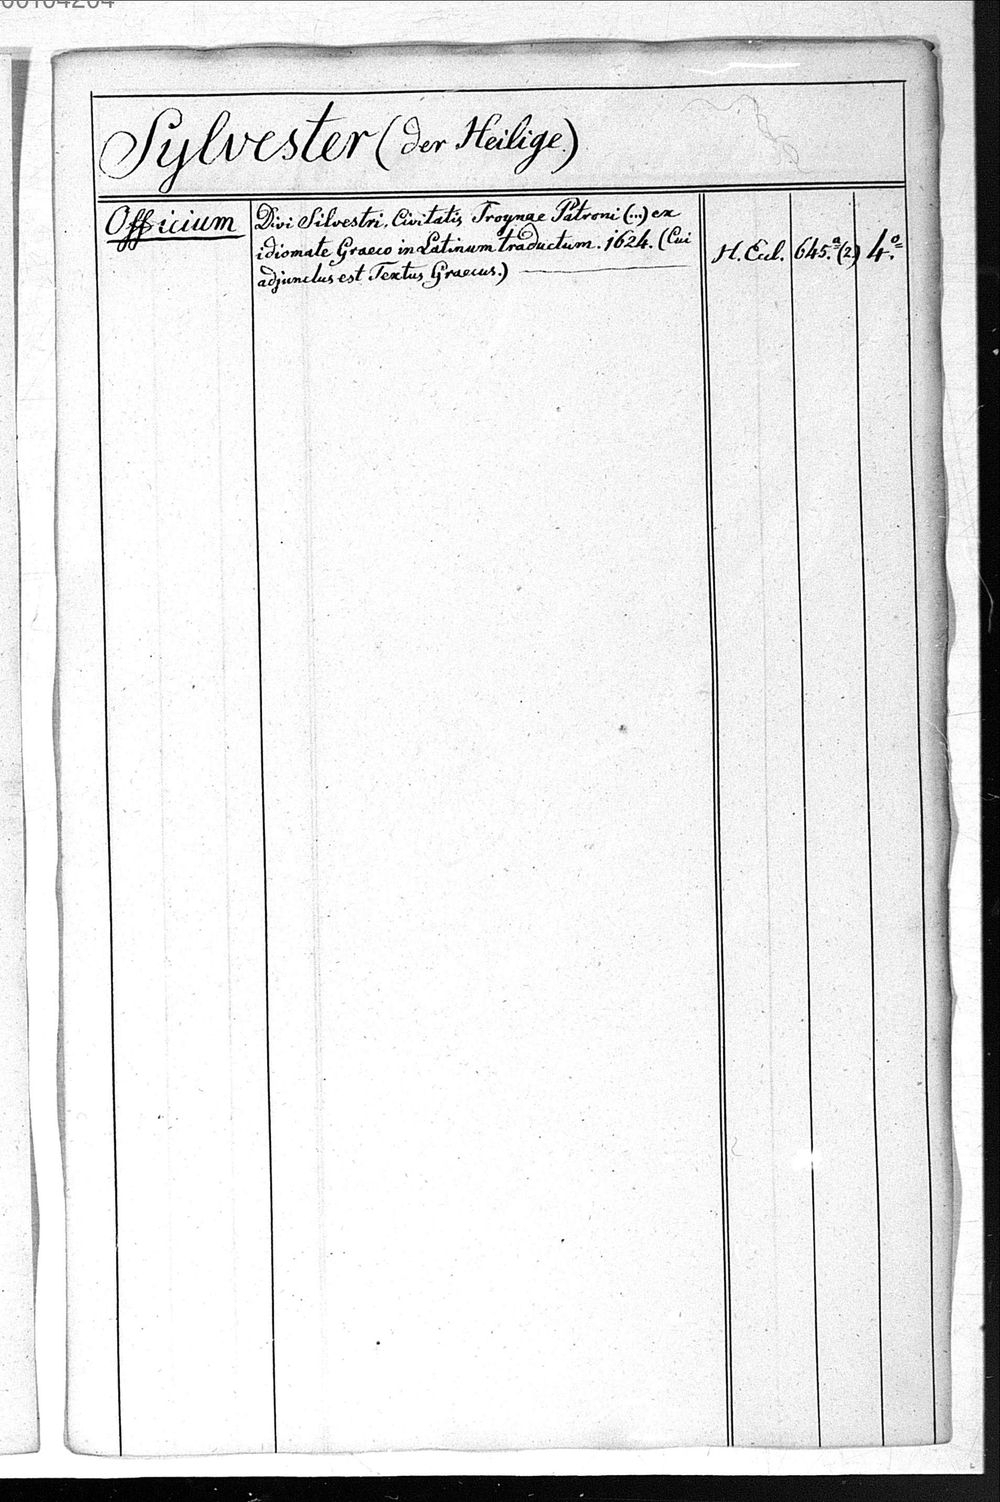 Sylvester (der Heilige.)
Officium
Divi Silvestri, Civitatis Troynae Patroni (...) ex
idiomate Graeco in Latinum traductum. 1624. (Cui
adjunctus est Textus Graecus.)
H. Eccl. 645.a (2.) 4.o